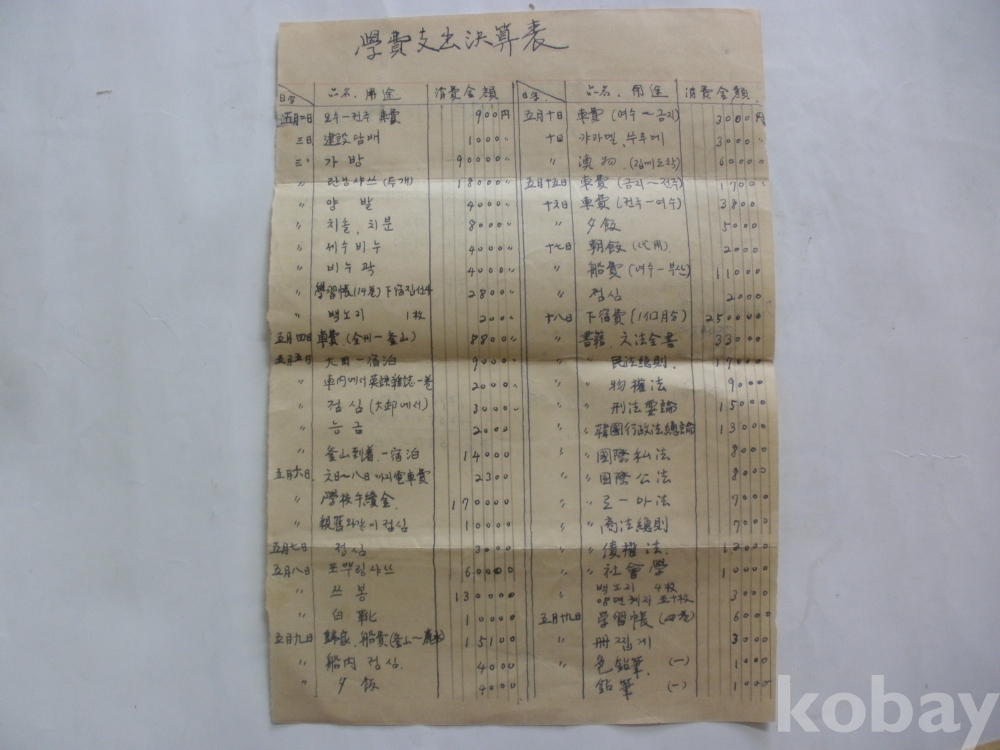 學費支出決算表
日字 品名、用途 消費金額
五月一日 오수—전주 車費 900円
三日 建設담배 1000〃
三〃 가방 90000〃
〃 란닝샤쓰 (두개) 18000〃
〃 양발 4000〃
〃 치솔、치분 8000〃
〃 세수비누 4000〃
〃 비누곽 4000〃
〃 學習帳(14卷) 下宿집 2800〃
〃 백노지 1枚 200〃
五月四日 車費 (全州—釜山) 8800〃
五月五日 大田—宿泊 9000〃
〃 車内에서 英語雜誌一卷 2000〃
〃 점심 (大邱에서) 3000〃
〃 능금 2000
〃 釜山到着、一宿泊 14000
五月六日 六日〜八日까지電車費 2300
〃 學校午續金 170000
〃 親舊와같이 점심 10000
五月七日 점심 3000
五月八日 포뿌링샤쓰 60000
〃 쓰봉 130000
〃 白靴 10000
五月九日 船費(釜山〜麗水) 15100
〃 船内점심 4000
〃 夕飯 4000
日字 品名、用途 消費金額
五月十日 車費 (여수〜금지) 3000円
十日 캬라멜、부루메 3000〃
〃 漁物 6000〃
五月十五日 車費 (금지〜전주) 1700〃
十六日 車費 (전주—여수) 3800
〃 夕飯 5000
十七日 朝飯 (代用) 2000
〃 船費 (여수—부산) 11000
〃 점심 2000
十八日 下宿費 (1個月分) 250000
〃 書籍、六法全書 33000
〃 〃 民法總則 17000
〃 〃 物權法 9000
〃 〃 刑法要論 15000
〃 〃 韓國行政法總論 13000
〃 〃 國際私法 8000
〃 〃 國際公法 8000
〃 〃 로—마法 7000
〃 〃 商法總則 7000
〃 〃 債權法 12000
〃 〃 社會學 10000
백노지 4枚
양면괘지 五十枚 3000
五月十九日 学習帳 (四卷) 6000
〃 册집게 3000
〃 色鉛筆 (一) 1000
鉛筆 (一) 1000
kobay